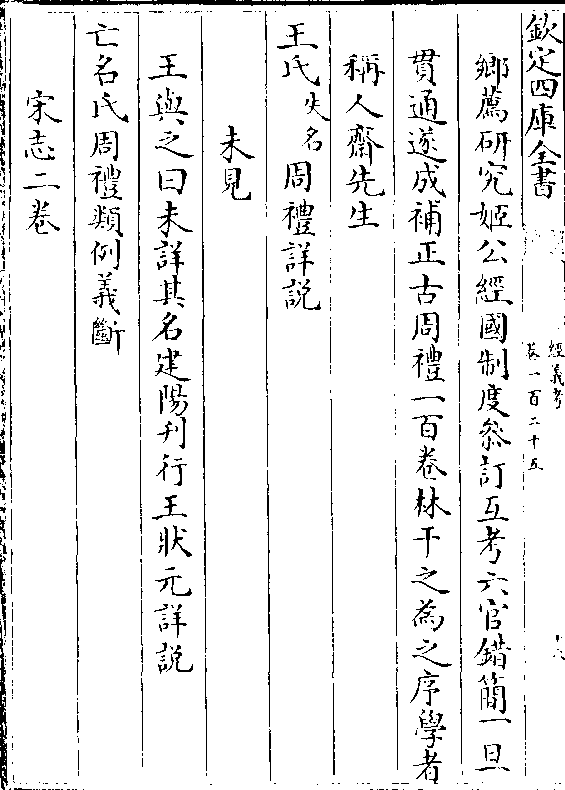 欽定四庫全書
經義考
卷一百二十五
鄉薦研究姬公經國制度叅訂互考六官錯簡一旦
貫通遂成補正古周禮一百卷林干之為之序學者
稱人齋先生
王氏失名周禮詳説
未見
王與之曰未詳其名建陽刋行王狀元詳説
亡名氏周禮類例義斷
宋志二卷